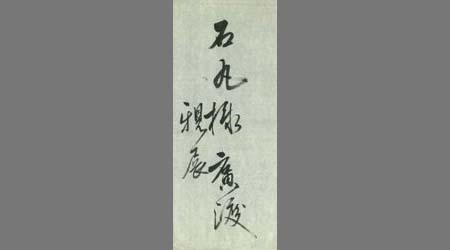 石丸様 廣
親展